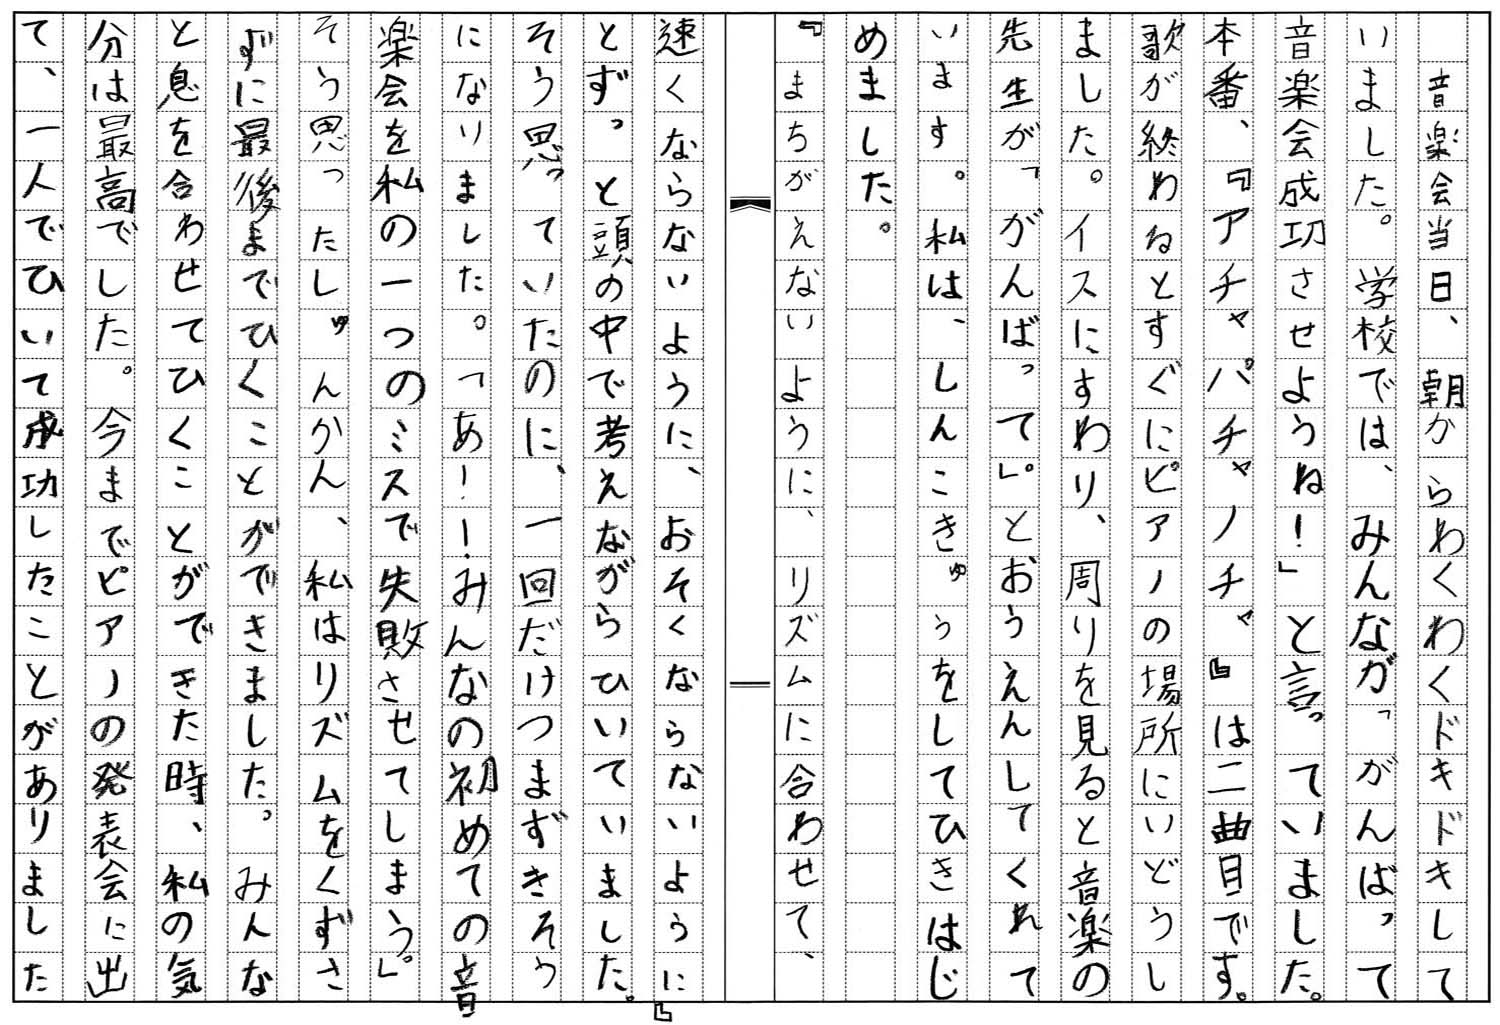 音楽会当日、朝からわくわくドキドキして
いました。学校では、みんなが「がんばって
音楽会成功させようね！」と言っていました。
本番、『アチャパチャノチャ』は二曲目です。
歌が終わるとすぐにピアノの場所にいどうし
ました。イスにすわり、周りを見ると音楽の
先生が「がんばって」。とおうえんしてくれて
います。私は、しんこきゅうをしてひきはじ
めました。
『まちがえないように、リズムに合わせて、
速くならないように、おそくならないように』
とずっと頭の中で考えながらひいていました。
そう思っていたのに、一回だけつまずきそう
になりました。「あ！！みんなの初めての音
楽会を私の一つのミスで失敗させてしまう。」
そう思ったしゅんかん、私はリズムをくずさ
ずに最後までひくことができました。みんな
と息を合わせてひくことができた時、私の気
分は最高でした。今までピアノの発表会に出
て、一人でひいて成功したことがありました